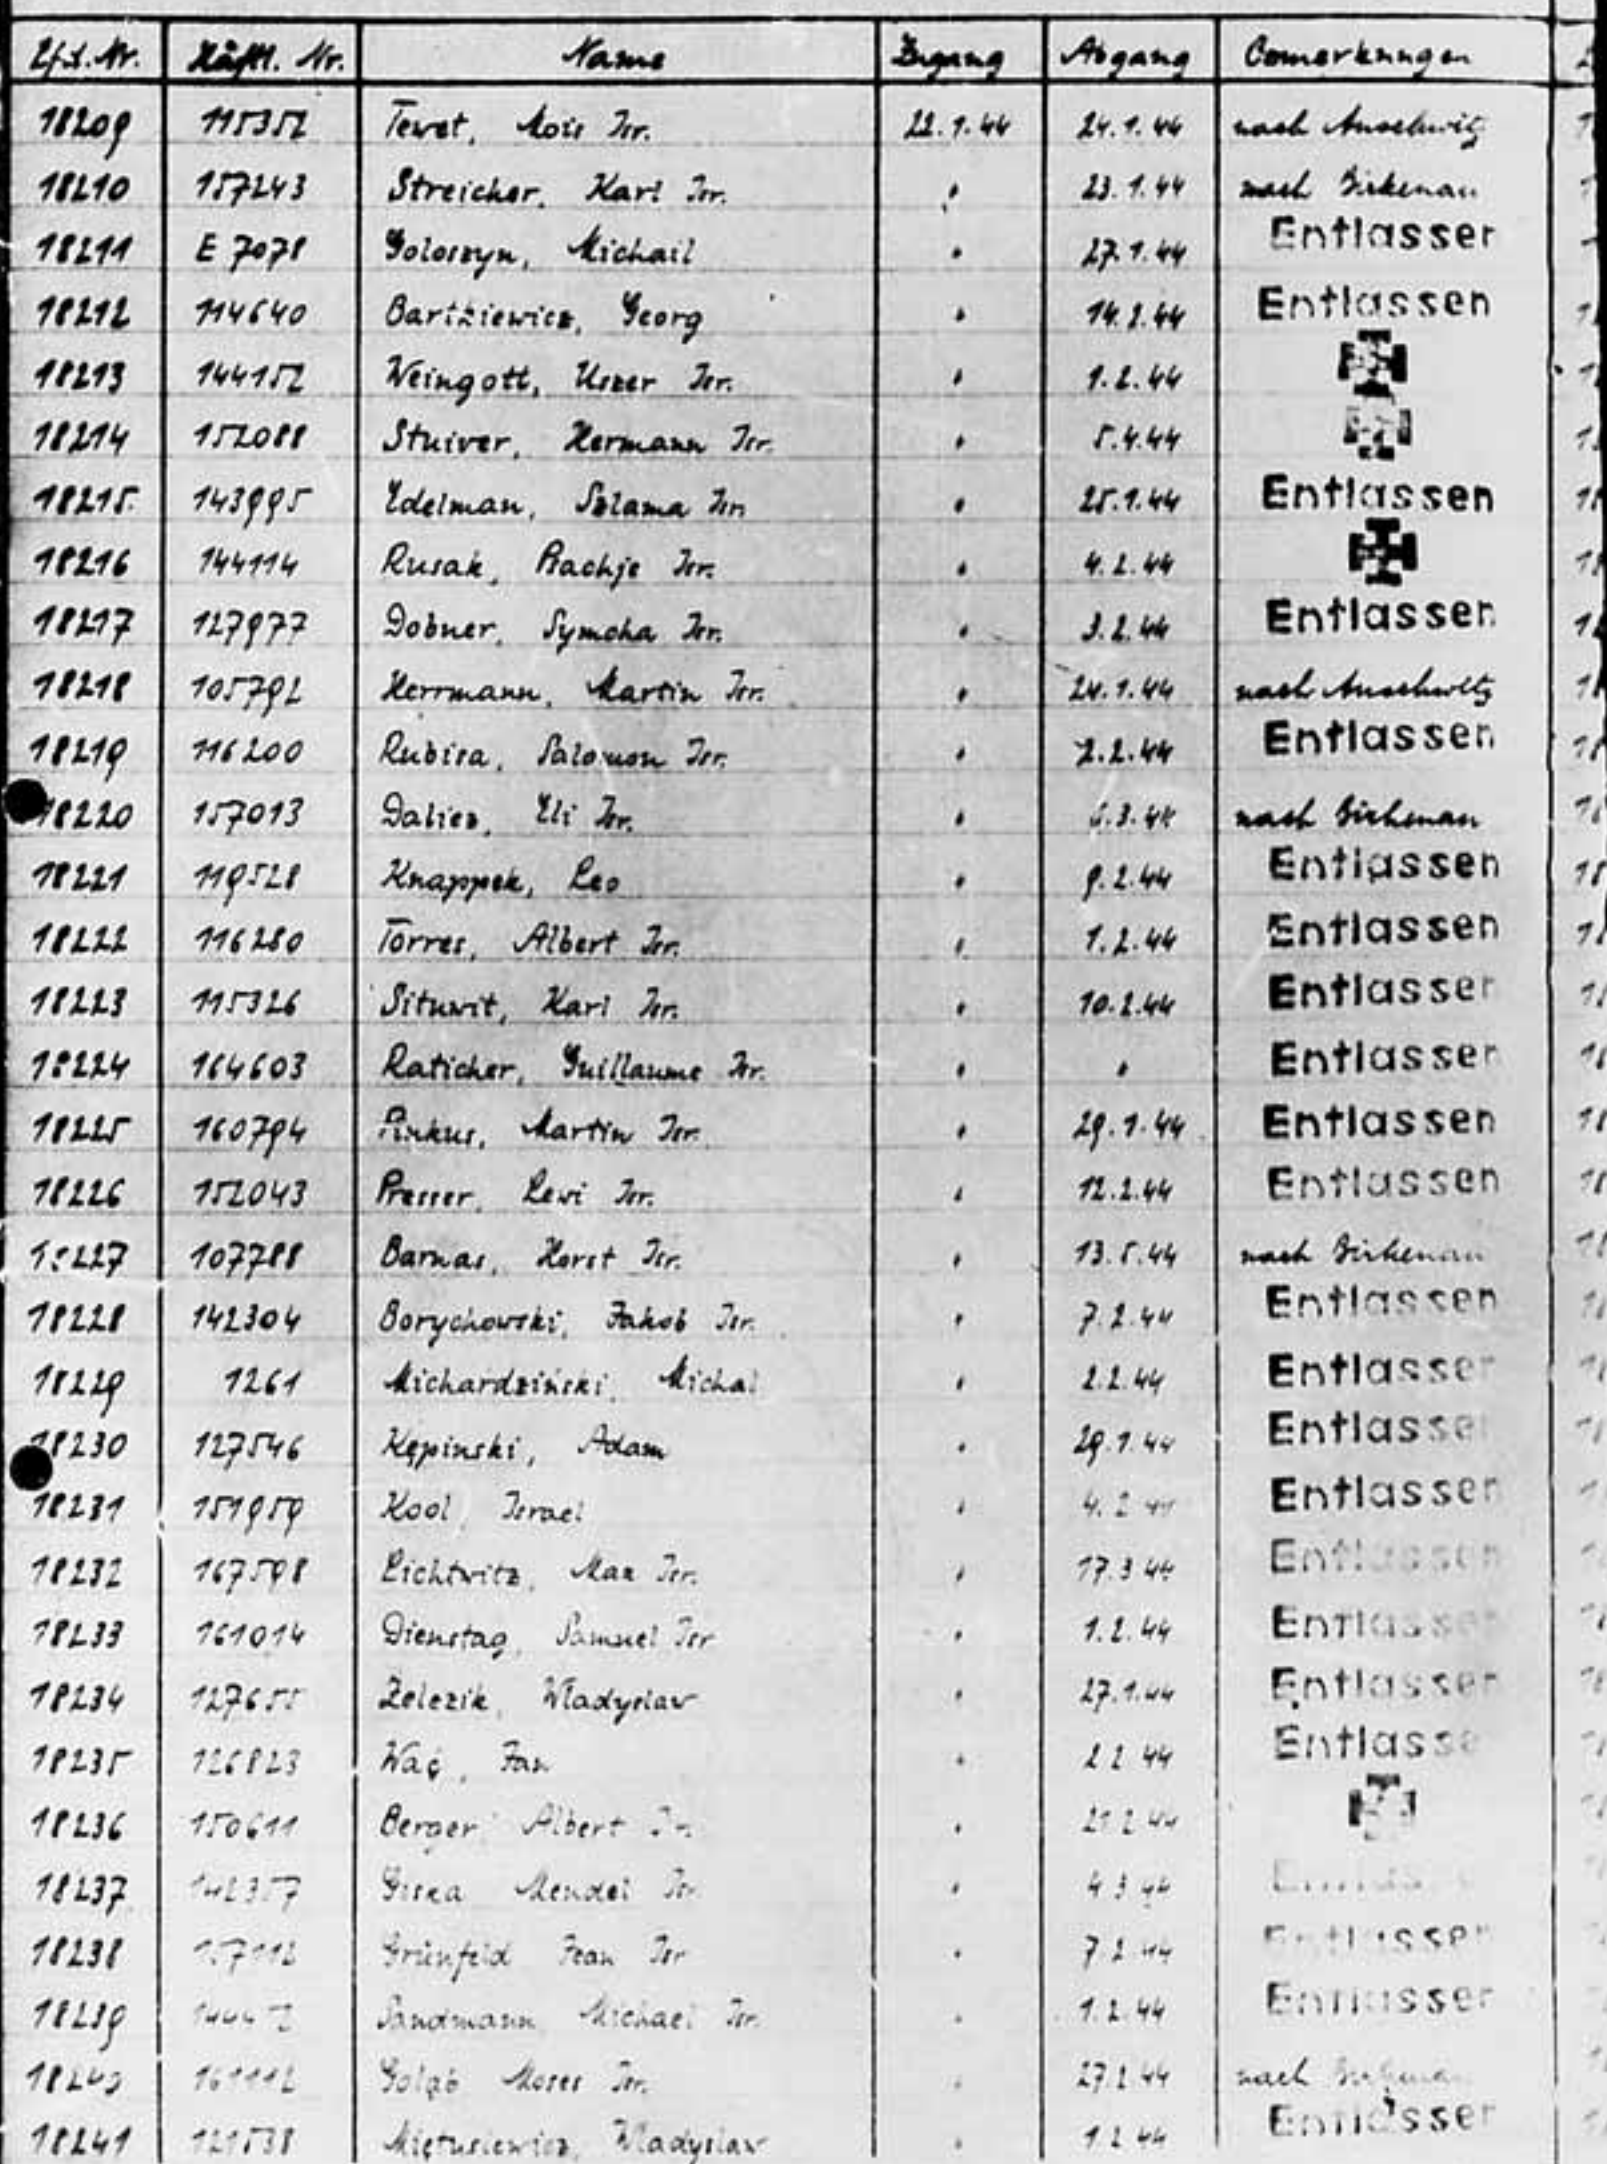 Lfd. Nr. Häftl. Nr. Name Zugang Abgang Bemerkungen
18209 115352 Tewet, Mois Isr. 22.1.44 24.1.44 nach Auschwitz
18210 157243 Streicher, Karl Isr. " 23.1.44 nach Birkenau
18211 E 7078 Goloszyn, Michail " 27.1.44 Entlassen
18212 114640 Bartkiewicz, Georg " 14.2.44 Entlassen
18213 144152 Weingott, Uszer Isr. " 1.2.44
18214 152088 Stuiver, Hermann Isr. " 5.4.44
18215 143995 Edelman, Szlama Isr. " 25.1.44 Entlassen
18216 144114 Rusak, Rachje Isr. " 4.2.44
18217 127977 Dobner, Symcha Isr. " 3.2.44 Entlassen
18218 105792 Herrmann, Martin Isr. " 24.1.44 nach Auschwitz
18219 116200 Rubisa, Salomon Isr. " 2.2.44 Entlassen
18220 157013 Daliez, Eli Isr. " 6.3.44 nach Birkenau
18221 119528 Knappek, Leo " 9.2.44 Entlassen
18222 116280 Torres, Albert Isr. " 1.2.44 Entlassen
18223 115326 Situwit, Karl Isr. " 10.2.44 Entlassen
18224 164603 Raticher, Guillaume Isr. " " Entlassen
18225 160794 Pinkus, Martin Isr. " 29.1.44 Entlassen
18226 152043 Presser, Lewi Isr. " 12.2.44 Entlassen
18227 107788 Barnas, Horst Isr. " 13.5.44 nach Birkenau
18228 142304 Borychowski, Jakob Isr. " 7.2.44 Entlassen
18229 1261 Michardziński, Michal " 2.2.44 Entlassen
18230 127546 Kępinski, Adam " 29.1.44 Entlassen
18231 151959 Kool, Israel " 4.2.44 Entlassen
18232 167598 Lichtwitz, Max Isr. " 17.3.44 Entlassen
18233 161014 Dienstag, Samuel Isr. " 1.2.44 Entlassen
18234 127655 Zelezik, Wladyslaw " 27.1.44 Entlassen
18235 126823 Jan " 2.2.44 Entlassen
18236 150611 Berger Albert Isr. " 21.2.44
18237 Mendel Isr. " 4.3.44
18238 Grünfeld Jean Isr. " 7.2.44 Entlassen
18239 Sandmann Michael Isr. " 1.2.44 Entlassen
18240 161112 Goląb Moses Isr. " 27.2.44 nach Birkenau
18241 121538 Miętusiewicz, Wladyslaw " 1.2.44 Entlassen